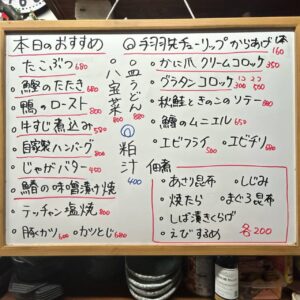 本日のおすすめ
・たこぶつ 680
・鰹のたたき 680
・鴨のロースト 800
・牛すじ煮込み 580
・自家製ハンバーグ 800
・じゃがバター 450
・鰆の味噌漬け焼
・テッチャン塩焼 800
・豚カツ 600 ・カツとじ 680
・皿うどん 680
・八宝菜 680
◎粕汁
◎手羽先チューリップからあげ 1本 160
・かに爪クリームコロッケ 350
・グラタンコロッケ 1コ 300 2コ 550
・秋鮭ときのこのソテー 880
・鱈のムニエル 650
・エビフライ 580 ・エビチリ 580
佃煮
・あさり昆布 ・しじみ
・焼たら ・まぐろ昆布
・しば漬きくらげ
・えびするめ 各200